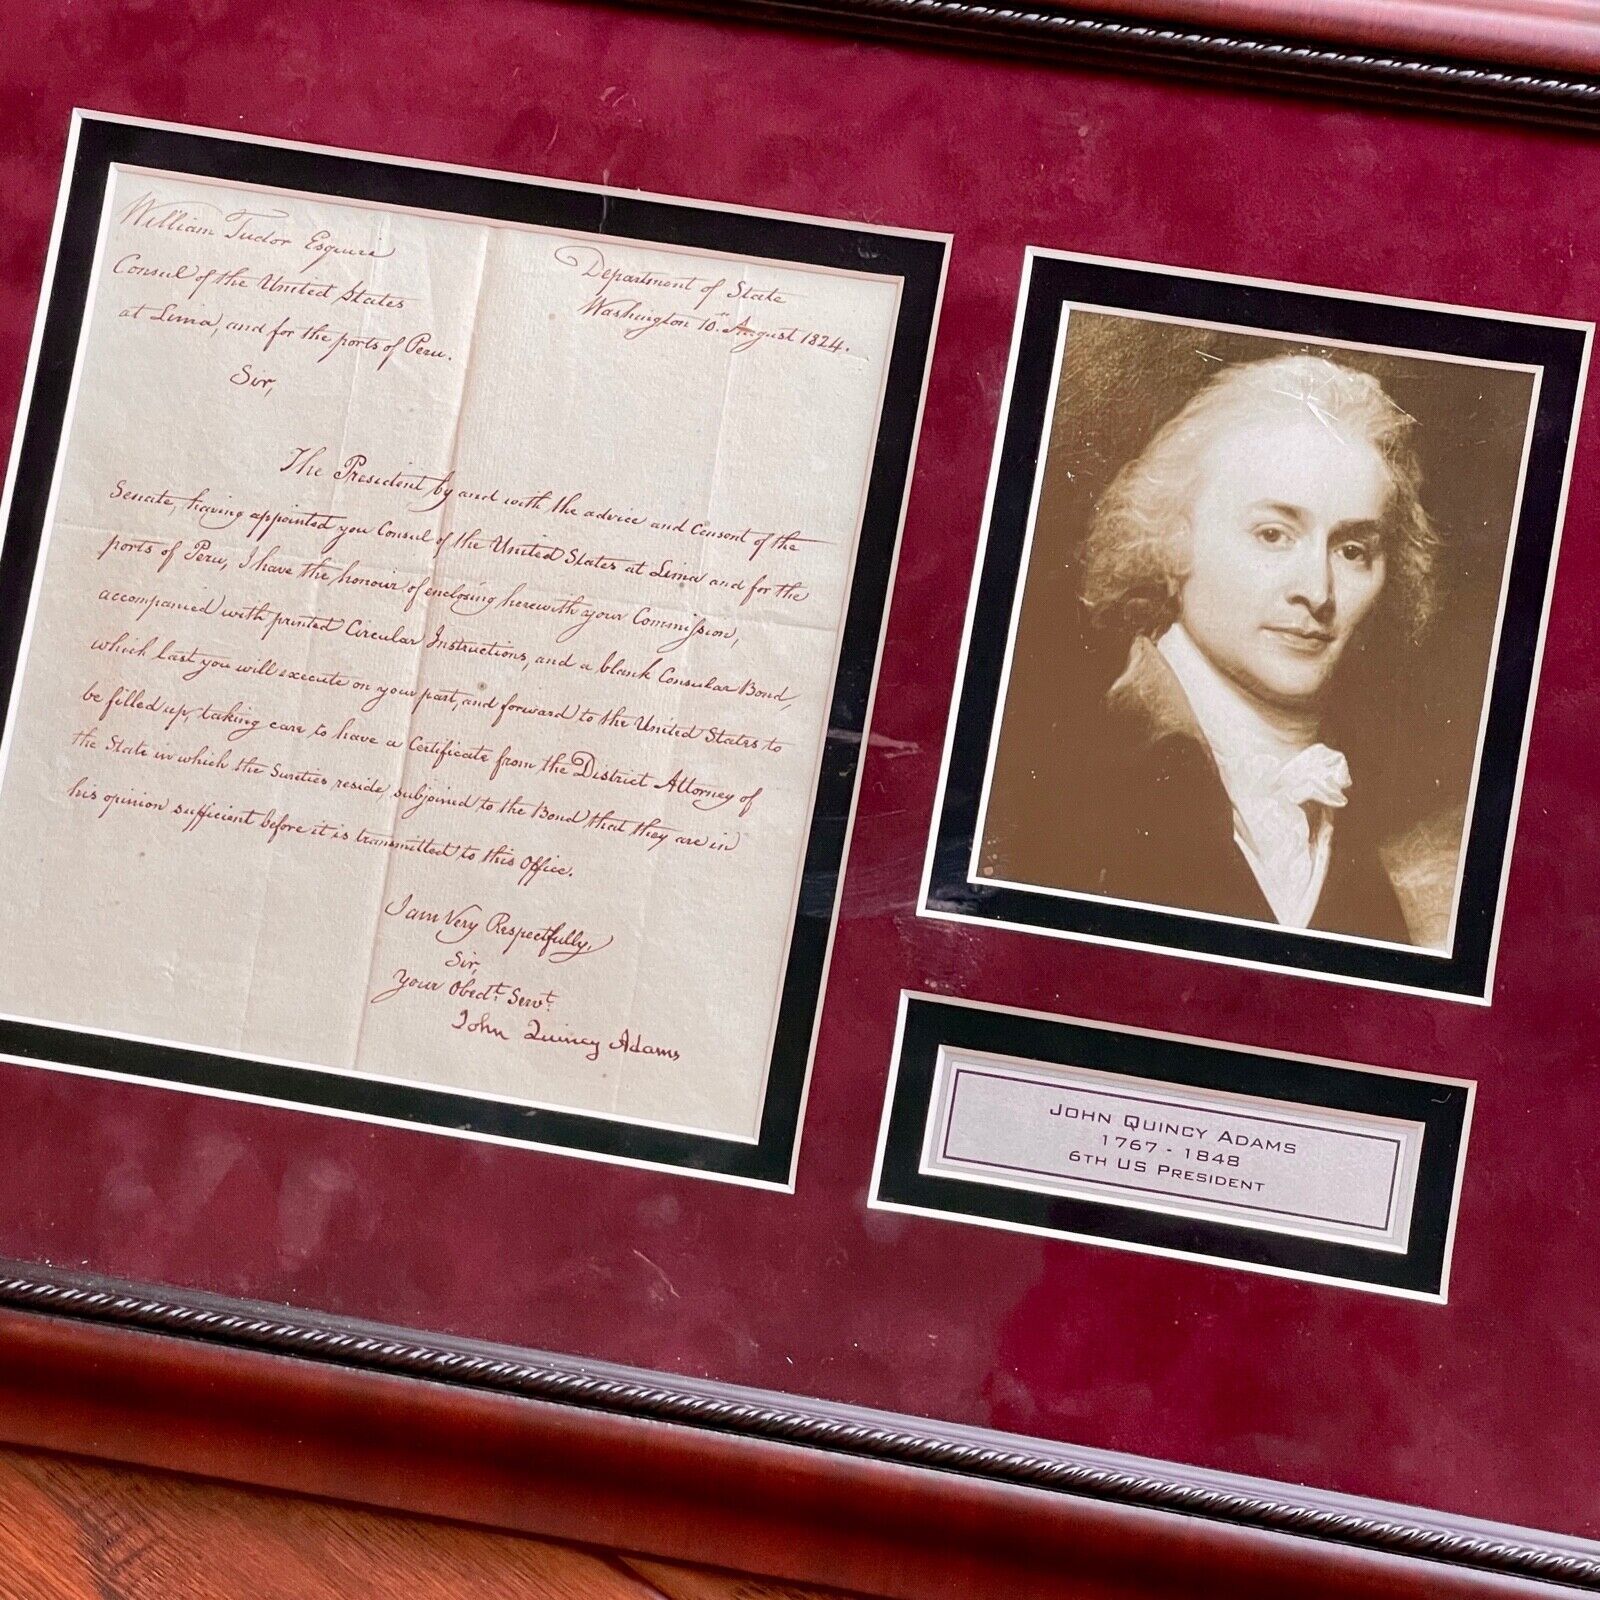 William Tudor Esquire
Consul of the United States
at Lima, and for the ports of Peru.
Department of State
Washington 10th August 1824.
Sir,
The President by and with the advice and Consent of the
Senate, having appointed you Consul of the United States at Lima and for the
ports of Peru, I have the honour of enclosing herewith your Commission,
accompanied with printed Circular Instructions, and a blank Consular Bond,
which last you will execute on your part, and forward to the United States to
be filled up, taking care to have a Certificate from the District Attorney of
the State in which the Sureties reside, subjoined to the Bond that they are in
his opinion sufficient before it is transmitted to this Office.
I am Very Respectfully,
Sir,
Your Obedt. Servt.
John Quincy Adams
John Quincy Adams
1767 - 1848
6th US President